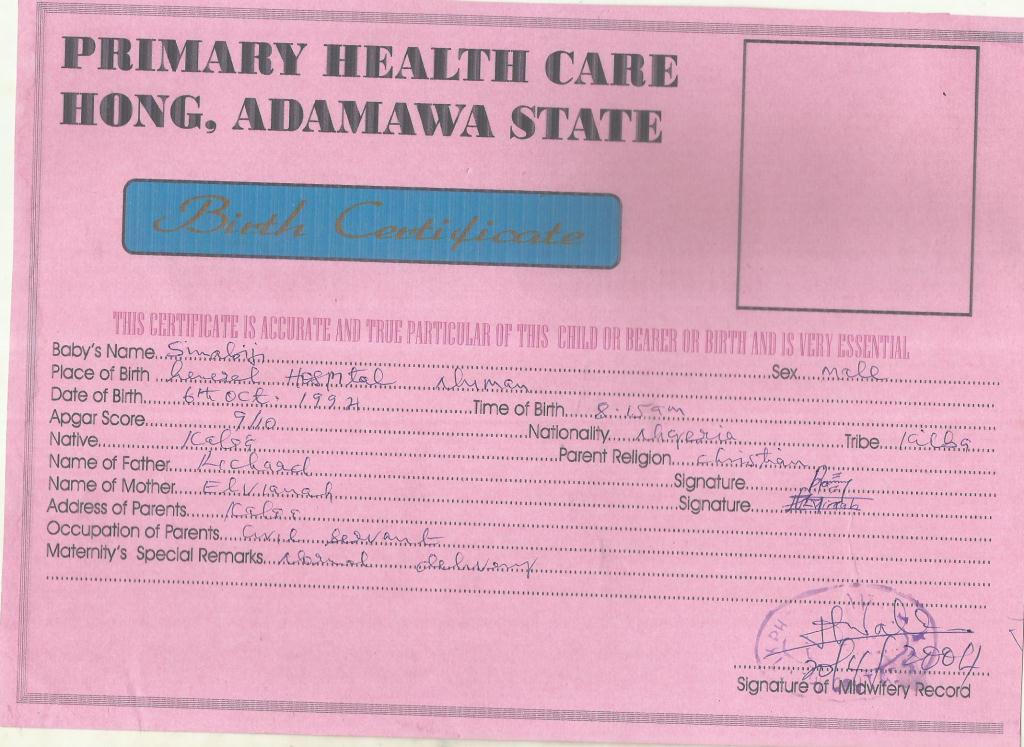 PRIMARY HEALTH CARE
HONG, ADAMAWA STATE
Birth Certificate
THIS CERTIFICATE IS ACCURATE AND TRUE PARTICULAR OF THIS CHILD OR BEARER OR BIRTH AND IS VERY ESSENTIAL
Baby's Name Sex male
Place of Birth General Hospital Numan
Date of Birth 6th Oct. 1992 Time of Birth 8:15am
Apgar Score 9/10 Nationality Nigeria Tribe Kilba
Native Parent Religion christian
Name of Father Richard Signature
Name of Mother Elvianah Signature
Address of Parents
Occupation of Parents Civil Servant
Maternity's Special Remarks Normal delivery
20/4/2004
Signature of Midwifery Record